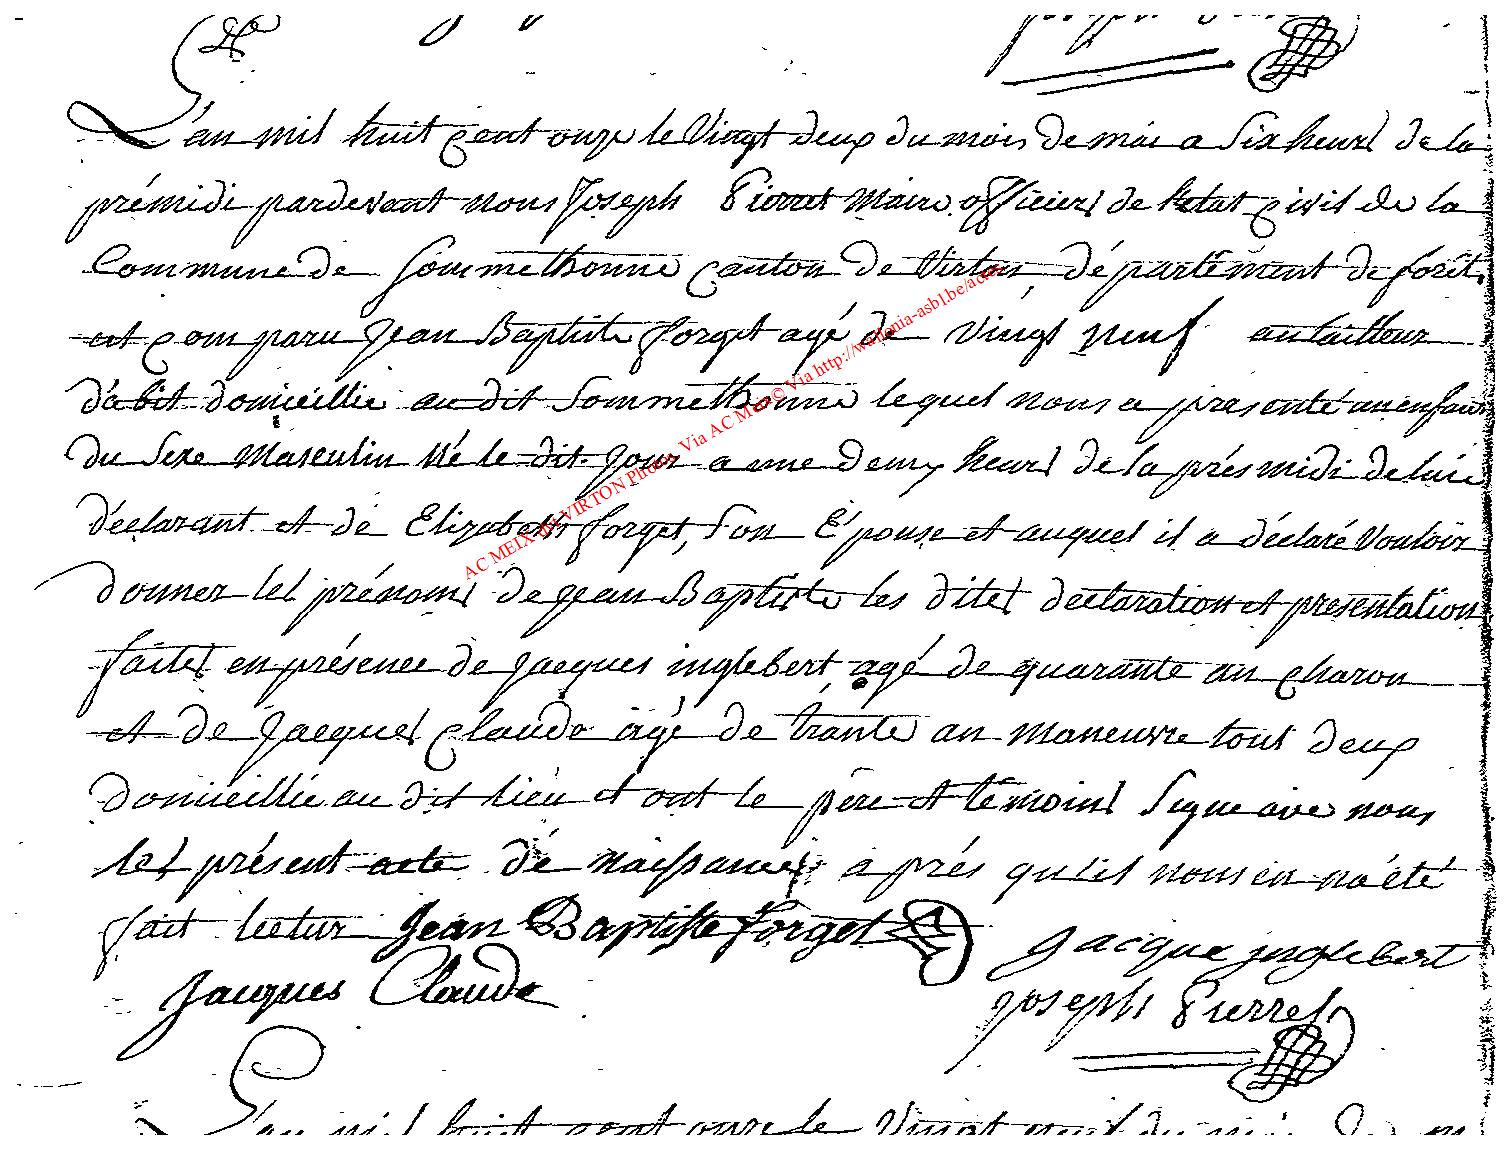 L'an mil huit cent onze le Vingt deux du mois de mai a Six heurs de la
prémidi pardevant nous Joseph Pierret Maire officiers de l'etat civil de la
Commune de Sommethonne canton de Virton département de forêt
est comparu Jean Baptiste forget agé de vingt neuf an tailleur
d'abit domicillié au dit Sommethonne lequel nous a presenté un enfant
du Sexe Masculin Né le dit Jour a deux heurs de la présmidi de lui
déclarant et de Elizabeth forget, Son Épouse et auquel il a déclaré Vouloir
donner les prénoms de Jean Baptiste les dites declaration et presentation
faites en présence de Jacques inglebert agé de quarante an charon
et de Jacques Claude agé de trante an maneuvre tout deux
domicillié au dit lieu et ont le père et témoins Signe ave nous
les présent acte dé naissances après qu'il nous en na été
fait lectur Jean Baptiste Forget
Jacque jnglebert
Jacques Claude
Joseph Pierret
L'an mil huit cent onze le Vingt neuf du
AC MEIX-dt-VIRTON Photos Via AC Meix© Via http://wallonia-asbl.be/actes